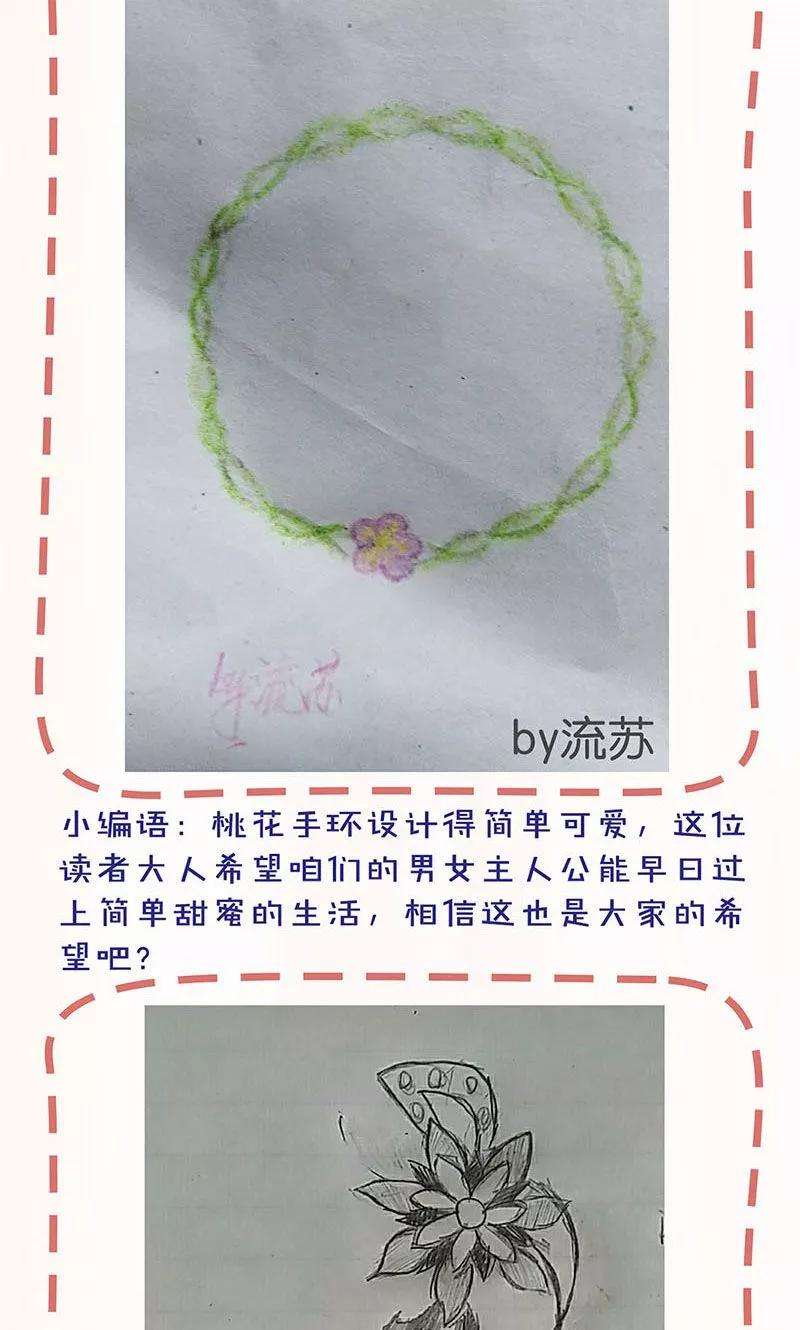 流苏
by流苏
小编语：桃花手环设计得简单可爱，这位
读者大人希望咱们的男女主人公能早日过
上简单甜蜜的生活，相信这也是大家的希
望吧？